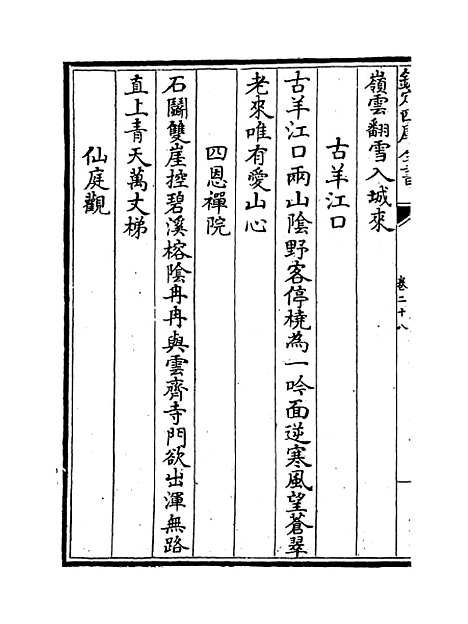 欽定四庫全書
卷二十八
嶺雲翻雪入城來
古羊江口
古羊江口兩山陰野客停橈為一吟面逆寒風望蒼翠
老來唯有愛山心
四恩禪院
石鬭雙崖控碧溪榕陰冉冉與雲齊寺門欲出渾無路
直上青天萬丈梯
仙庭觀